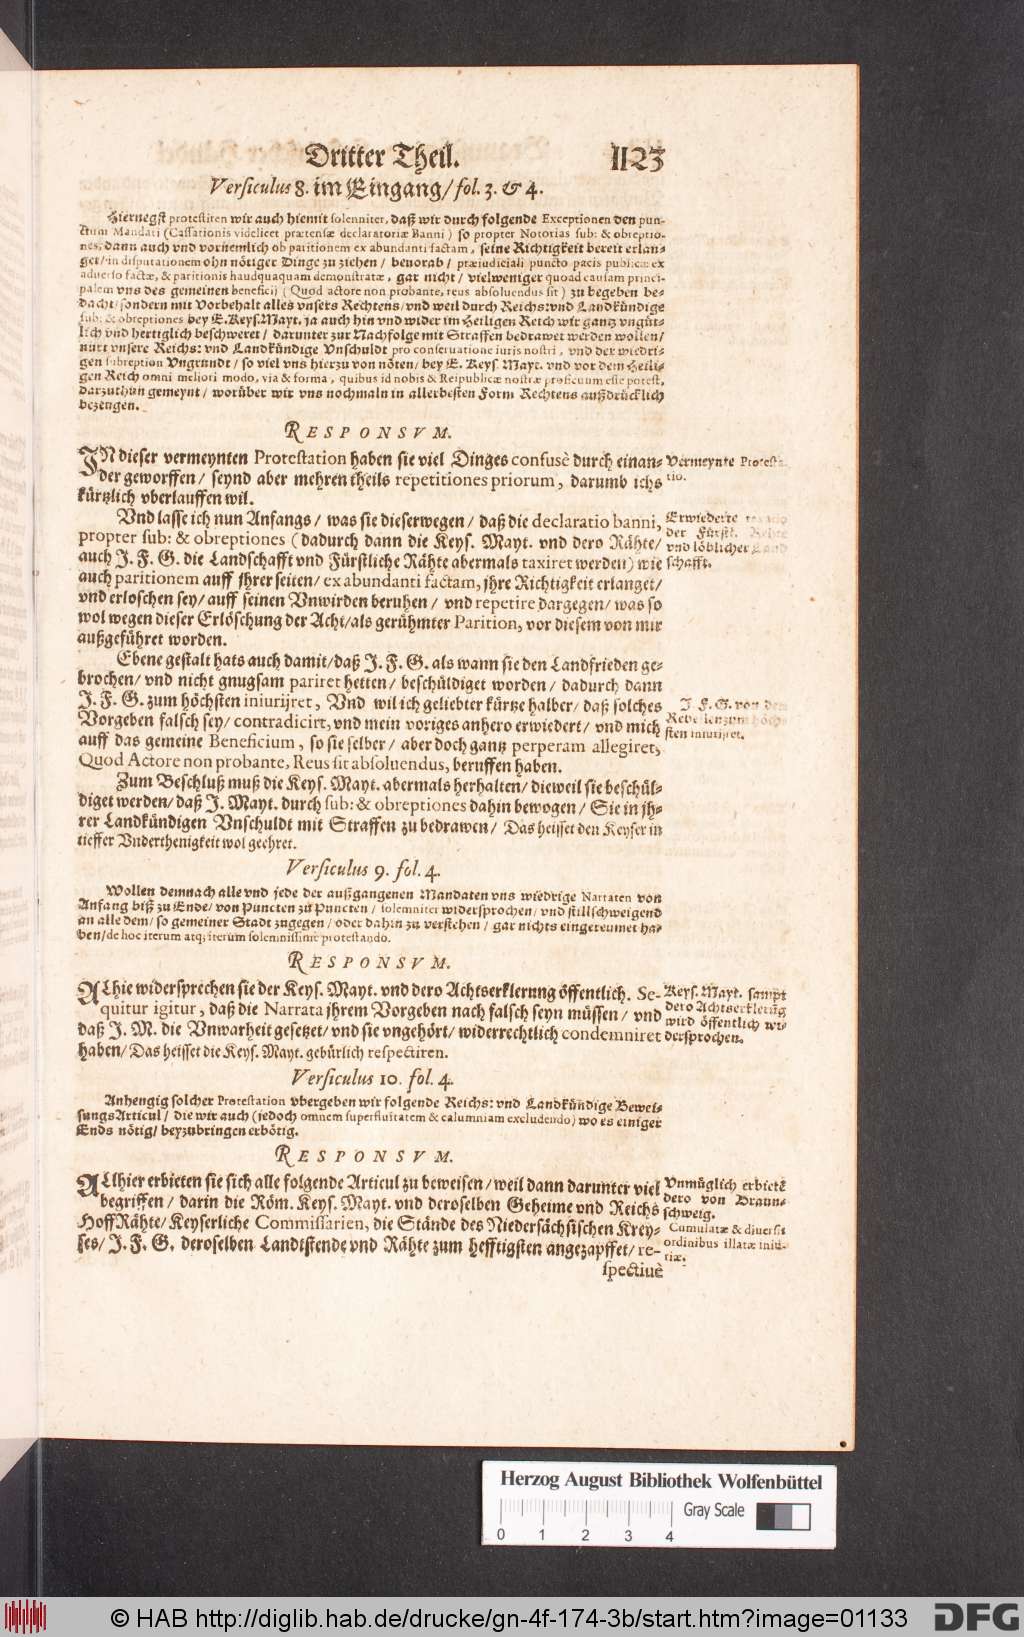 Dritter Theil. 1123
Versiculus 8. im Eingang/ fol. 3. & 4.
Hiernegst protestiren wir auch hiemit solenniter, daß wir durch folgende Exceptionen den pun-
ctum Mandati (Cassationis videlicet prætensæ declaratoriæ Banni) so propter Notorias sub: & obreptio-
nes, dann auch vnd vornemlich ob paritionem ex abundanti factam, seine Richtigkeit bereit erlan-
get/ in disputationem ohn nötiger Dinge zu ziehen/ beuorab/ præiudiciali puncto pacis publicæ ex
aduerso factæ, & paritionis haudquaquam demonstratæ, gar nicht/ vielweniger quoad causam princi-
palem vns des gemeinen beneficij (Quod actore non probante, reus absoluendus sit) zu begeben be-
dacht/ sondern mit Vorbehalt alles vnsers Rechtens/ vnd weil durch Reichs: vnd Landkündige
sub: & obreptiones bey E. Keys. Mayt. ja auch hin vnd wider im Heiligen Reich wir gantz vngüt-
lich vnd hertiglich beschweret/ darunter zur Nachfolge mit Straffen bedrawet werden wollen/
nurt vnsere Reichs: vnd Landkündige Vnschuldt pro conseruatione iuris nostri, vnd der wiedri-
gen subreption Vngrundt/ so viel vns hierzu von nöten/ bey E. Keys. Mayt. vnd vor dem Heili-
gen Reich omni meliori modo, via & forma, quibus id nobis & Reipublicæ nostræ proficuum esse potest,
darzuthun gemeynt/ worüber wir vns nochmaln in allerbesten Form Rechtens außdrücklich
bezeugen.
RESPONSVM.
IN dieser vermeynten Protestation haben sie viel Dinges confusè durch einan-
der geworffen/ seynd aber mehren theils repetitiones priorum, darumb ichs
kürtzlich vberlauffen wil.
Vermeynte Protesta-
tio.
Vnd lasse ich nun Anfangs/ was sie dieserwegen/ daß die declaratio banni,
propter sub: & obreptiones (dadurch dann die Keys. Mayt. vnd dero Rähte/
auch J. F. G. die Landschafft vnd Fürstliche Rähte abermals taxiret werden) wie
auch paritionem auff jhrer seiten/ ex abundanti factam, jhre Richtigkeit erlanget/
vnd erloschen sey/ auff seinen Vnwirden beruhen/ vnd repetire dargegen/ was so
wol wegen dieser Erlöschung der Acht/ als gerühmter Parition, vor diesem von mir
außgeführet worden.
Erwiederte taxatio
der Fürstl. Rähte
vnd löblicher Land
schafft.
Ebene gestalt hats auch damit/ daß J. F. G. als wann sie den Landfrieden ge-
brochen/ vnd nicht gnugsam pariret hetten/ beschüldiget worden/ dadurch dann
J. F. G. zum höchsten iniurijret, Vnd wil ich geliebter kürtze halber/ daß solches
Vorgeben falsch sey/ contradicirt, vnd mein voriges anhero erwiedert/ vnd mich
auff das gemeine Beneficium, so sie selber/ aber doch gantz perperam allegiret,
Quod Actore non probante, Reus sit absoluendus, beruffen haben.
J. F. G. von den
Rebellen zum höch-
sten iniurijret.
Zum Beschluß muß die Keys. Mayt. abermals herhalten/ dieweil sie beschül-
diget werden/ daß J. Mayt. durch sub: & obreptiones dahin bewogen/ Sie in jh-
rer Landkündigen Vnschuldt mit Straffen zu bedrawen/ Das heisset den Keyser in
tieffer Vnderthenigkeit wol geehret.
Versiculus 9. fol. 4.
Wollen demnach alle vnd jede der außgangenen Mandaten vns wiedrige Narraten von
Anfang biß zu Ende/ von Puncten zu Puncten/ solemniter widersprochen/ vnd stillschweigend
an alle dem/ so gemeiner Stadt zugegen/ oder dahin zu verstehen/ gar nichts eingereumet ha-
ben/ de hoc iterum atq; iterum solemnissimè protestando.
RESPONSVM.
ALhie widersprechen sie der Keys. Mayt. vnd dero Achtserklerung öffentlich. Se-
quitur igitur, daß die Narrata jhrem Vorgeben nach falsch seyn müssen/ vnd
daß J. M. die Vnwarheit gesetzet/ vnd sie vngehört/ widerrechtlich condemniret
haben/ Das heisset die Keys. Mayt. gebürlich respectiren.
Keys. Mayt. sampt
dero Achtserklerũg
wird öffentlich wi-
dersprochen.
Versiculus 10. fol. 4.
Anhengig solcher Protestation vbergeben wir folgende Reichs: vnd Landkündige Bewei-
sungs Articul/ die wir auch (jedoch omnem superfluitatem & calumniam excludendo) wo es einiger
Ends nötig/ beyzubringen erbötig.
RESPONSVM.
ALlhier erbieten sie sich alle folgende Articul zu beweisen/ weil dann darunter viel
begriffen/ darin die Röm. Keys. Mayt. vnd deroselben Geheime vnd Reichs
HoffRähte/ Keyserliche Commissarien, die Stände des Niedersächsischen Krey-
ses/ J. F. G. deroselben Landtstende vnd Rähte zum hefftigsten angezapffet/ re-
spectiuè
Vnmüglich erbietẽ
dero von Braun-
schweig.
Cumulatæ & diuersis
ordinibus illatæ iniu-
riæ.
Herzog August Bibliothek Wolfenbüttel
Gray Scale
0 1 2 3 4
© HAB http://diglib.hab.de/drucke/gn-4f-174-3b/start.htm?image=01133
DFG